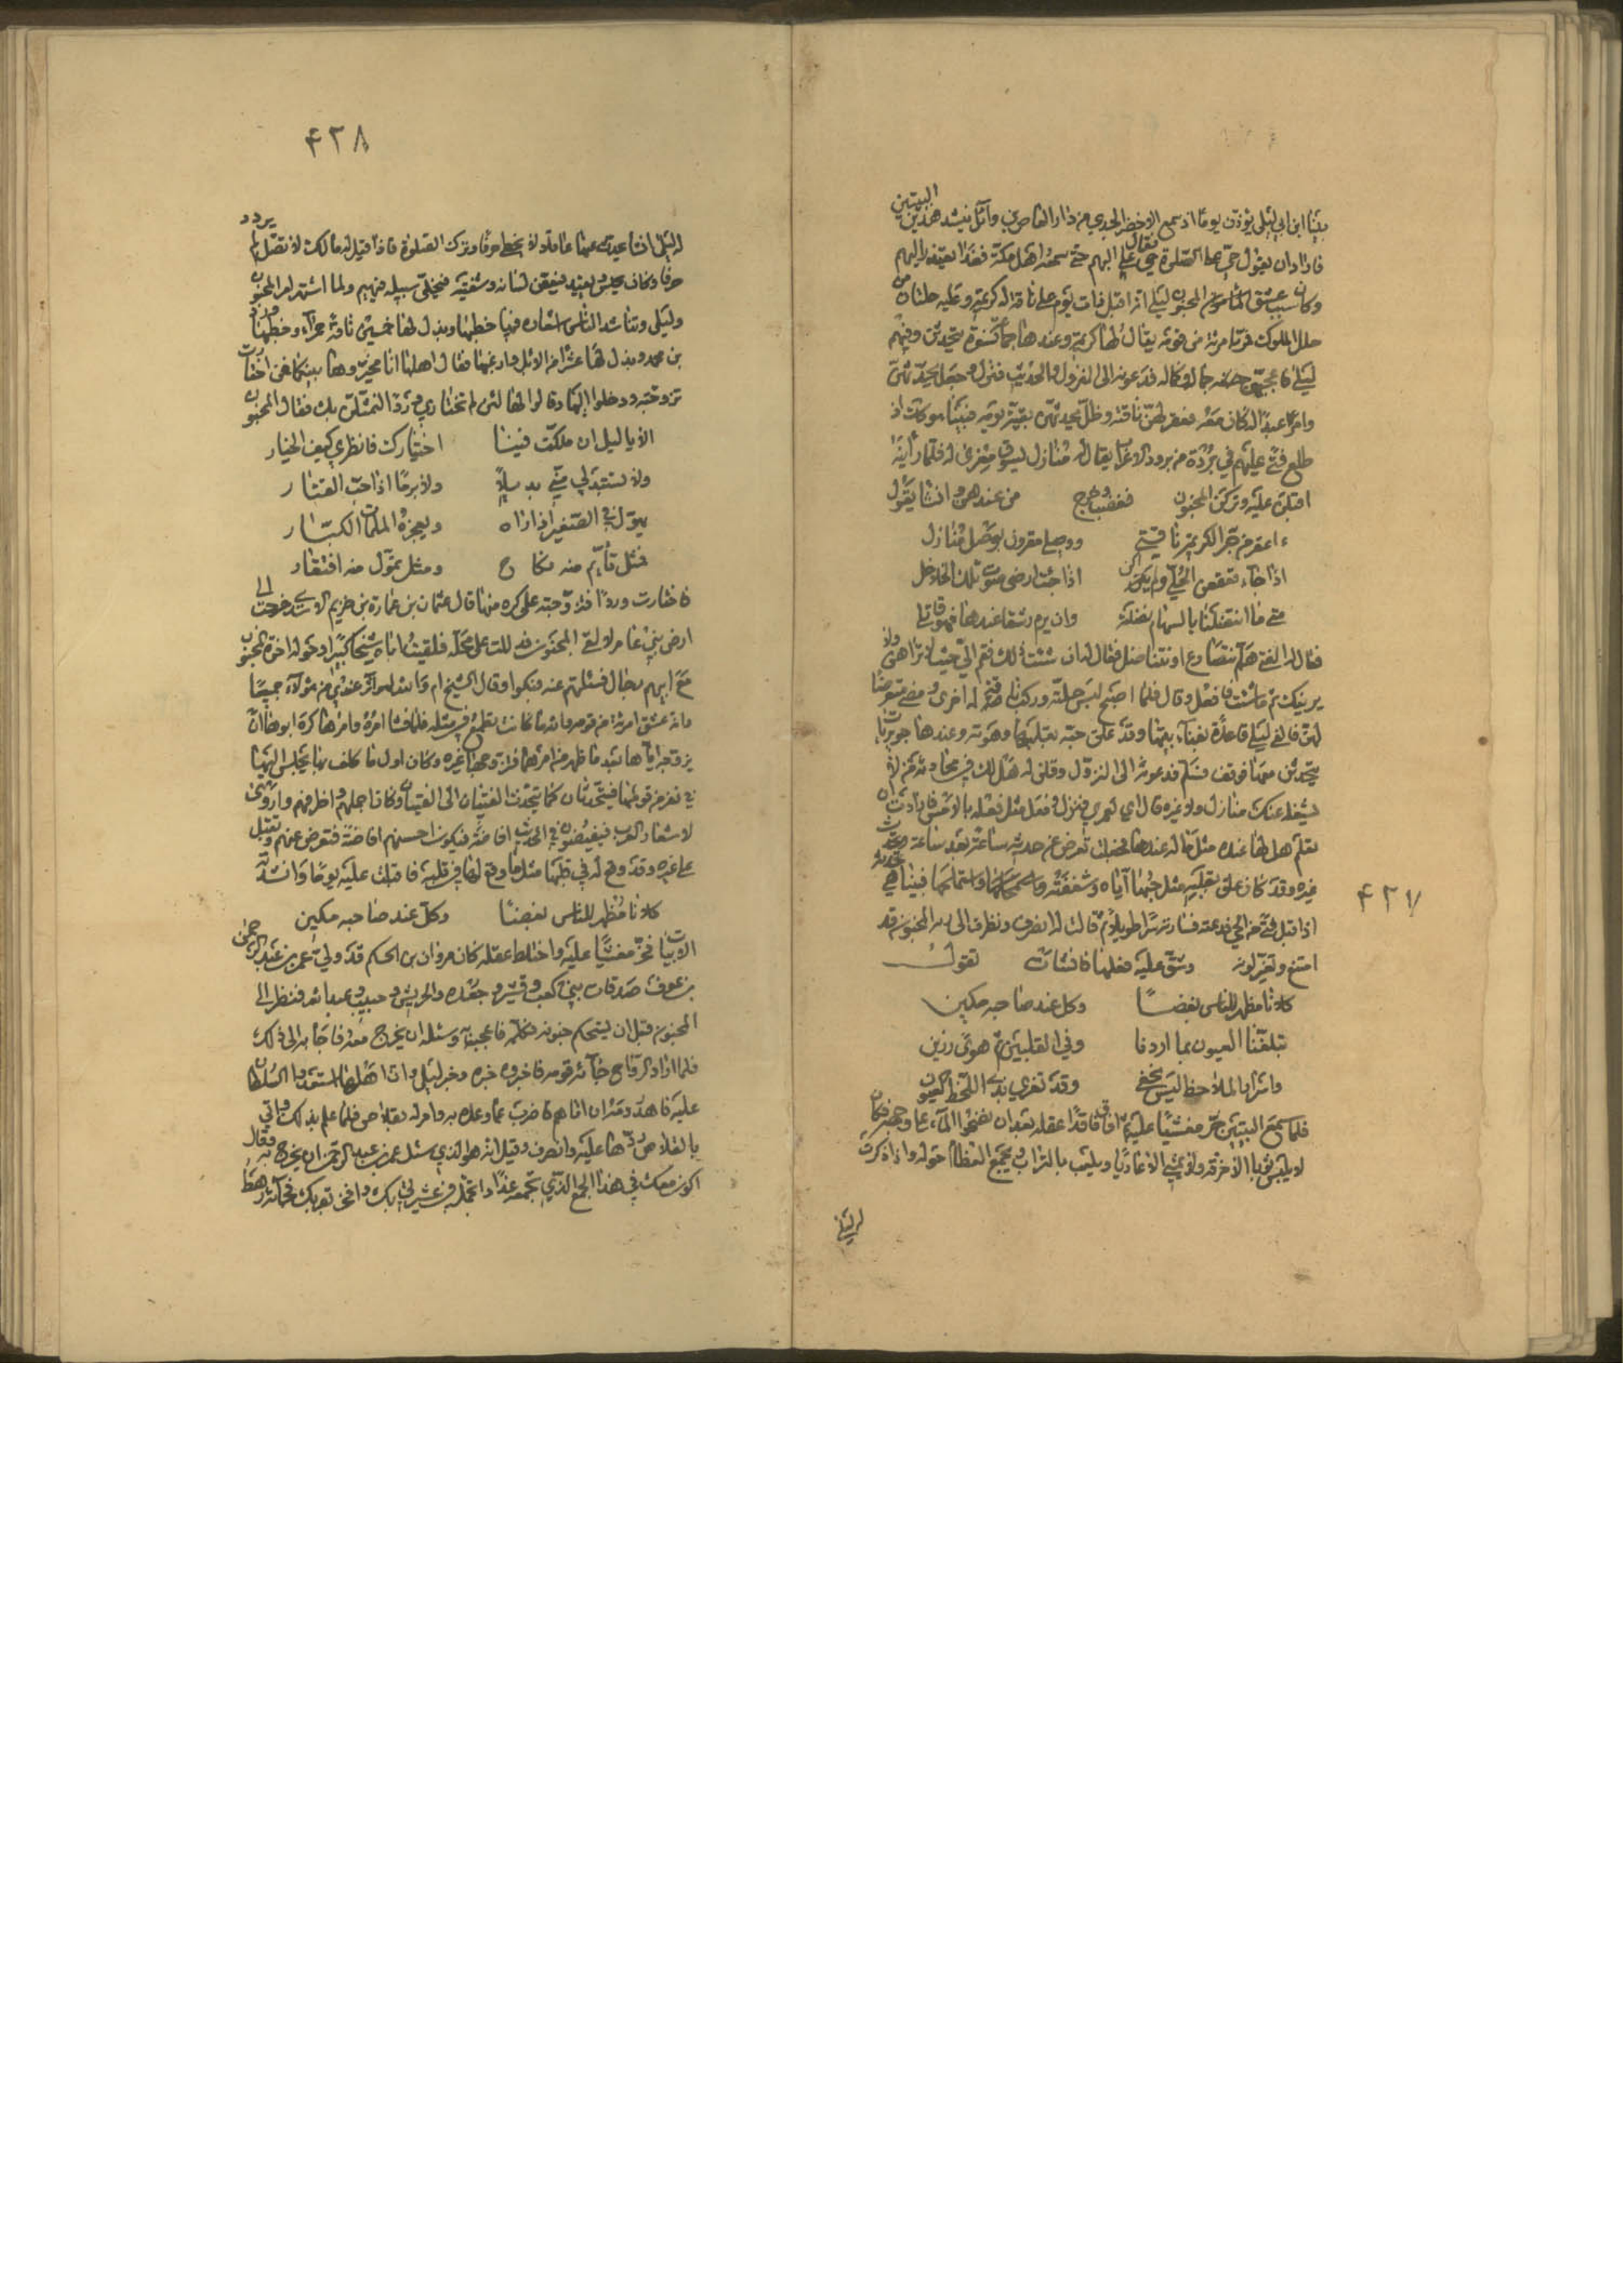 بينا ابن ابي ليلى يؤذن يوما اذ سمع الاخضر الجدي من دار العاص بن وائل ينشد هذين البيتين
فاراد ان يقول حي على الصلوة فقال حي على البهم حتى سمعه اهل مكة فغدا يعتذر اليهم
وكان سبب عشق المجنون ليلى انه اقبل ذات يوم على ناقة له كريمة وعليه حلتان من
حلل الملوك فمر بامرئة من قومه يقال لها كريمة وعندها جماعة نسوة يتحدثن وفيهم
ليلى فاعجبهن جماله وكماله فدعونه الى النزول والحديث فنزل وجعل يحدثهن
وامر عبدا له كان معه فعقر لهن ناقته وظل يحدثهن بقية يومه فبينا هو كذلك اذ
طلع فتى عليهم في بردة من برود الاعراب يقال له منازل يسوق معزى له فلما راينه
اقبلن عليه وتركن المجنون فغضب وخرج من عندهن وانشا يقول
ءاعقر من جرا كريمة ناقتي ووصلي مقرون بوصل منازل
اذا جاء قعقعن الحلي ولم يكن اذا جئت ارضى صوت تلك الخلاخل
متى ما انتضلنا بالسهام نضلته وان يرم رشقا عندها فهو قاتلي
فقال له الفتى هلم نتصارع او نتناضل فقال له ان شئت ذلك فقم الى حيث لا تراهن ولا
يرينك ثم ما شئت فافعل وقال فلما اصبح لبس حلته وركب ناقة له اخرى ومضى متعرضا
لهن فالفى ليلى قاعدة بفناء بيتها وقد علق حبه بقلبها وهوته وعندها جويريات
يتحدثن معها فوقف فسلم فدعونه الى النزول وقلن له هل لك في محادثة من لا
يشغله عنك منازل ولا غيره قال اي لعمري فنزل وفعل مثل فعله بالامس فارادت ان
تعلم هل لها عنده مثل ما له عندها فجعلت تعرض عن حديثه ساعة بعد ساعة وتحدث
غيره وقد كان علق بقلبه مثل حبها اياه وشغفته واستملحها فبينا هي تحدثه
اذ اقبل فتى من الحي فدعته فسارته سرا طويلا ثم قالت له انصرف ونظرت الى وجه المجنون قد
امتقع وتغير لونه وشق عليه فعلها فانشات تقول
كلانا مظهر للناس بغضا وكل عند صاحبه مكين
تبلغنا العيون بما اردنا وفي القلبين ثم هوى دفين
واسرار الملاحظ ليس تخفى وقد تغري بذي اللحظ العيون
فلما سمع البيتين خر مغشيا عليه ثم افاق فاقدا عقله بعد ان نضحوا الماء على وجهه فكان
لا يلبس ثوبا الا خرقه ولا يمشي الا عاريا ويلعب بالتراب ويجمع العظام حوله واذا ذكرت
له ليلى
۴۲۷
۴۲۸
له ليلى انشا يحدث عنها عاقلا ولا يخطي حرفا وترك الصلوة فاذا قيل له مالك لا تصلي لم يردد
حرفا وكان يحبس ويقيد فيعض لسانه وشفتيه فيخلى سبيله فيهيم ولما اشتهر امر المجنون
وليلى وتناشد الناس اشعاره فيها خطبها وبذل لها خمسين ناقة حمراء وخطبها ورد
بن محمد وبذل لها عشرا من الابل وراعيها فقال اهلها انا مخيروها بينكما فمن اختارت
تزوجته ودخلوا اليها وقالوا لها لئن لم تختاري وردا لنمثلن بك فقال المجنون
الا يا ليل ان ملكت فينا اختيارك فانظري كيف الخيار
ولا تستبدلي مني بدبيلا ولا برما اذا حب القتار
يهول في الصغير اذا راه ويعجزه الملمات الكبار
فمثل تأيم منه نكاح ومثل تمول منه افتقار
فاختارت وردا فتزوجته على كره منها قال عثمان بن عمارة بن خريم المري خرجت الى
ارض بني عامر لالقى المجنون فدللت على محله فلقيت اباه شيخا كبيرا وحوله اخوة المجنون
مع ابيهم رجالا فسئلتهم عنه فبكوا وقال الشيخ ام والله لهو اثر عندي من هؤلاء جميعا
وانه عشق امرئة من قومه والله ما كانت تطمع في مثله فلما فشا امره وامرها كره ابوها ان
يزوجه اياها بعد ما ظهر من امرهما فزوجها غيره وكان اول ما كلف بها يجلس اليها
في نفر من قومها فيتحدثان كما يتحدث الفتيان الى الفتيات وكان اجملهم واظرفهم وارواهم
لاشعار العرب فيفيضون في الحديث فيكون احسنهم افاضة فتعرض عنهم وتقبل
على غيره وقد وقع له في قلبها مثل ما وقع لها في قلبه فاقبلت عليه يوما وانشدته
كلانا مظهر للناس بغضا وكل عند صاحبه مكين
الابيات فخر مغشيا عليه واختلط عقله كان مروان بن الحكم قد ولى عمر بن عبد الرحمن
بن عوف صدقات بني كعب وقشير وجعده والحريش وحبيب وعبد الله فنظر الى
المجنون قبل ان يستحكم جنونه فكلمه فاعجبه وسئله ان يخرج معه فاجابه الى ذلك
فلما اراد الرواح جائه قومه فاخبروه خبره وخبر ليلى وان اهلها استعدوا السلطان
عليه فاهدر دمه ان اتاهم فاضرب عما وعده به وامر له بقلائص فلما علم بذلك واتي
بالقلائص ردها عليه وانصرف وقيل انه هو الذي سئل عمر بن عبد الرحمن ان يخرج به فقال
اكون معك في هذا الجمع الذي تجمعه غدا واتجمل في عشيرتي بك وافخر بقربك فجائه رهط